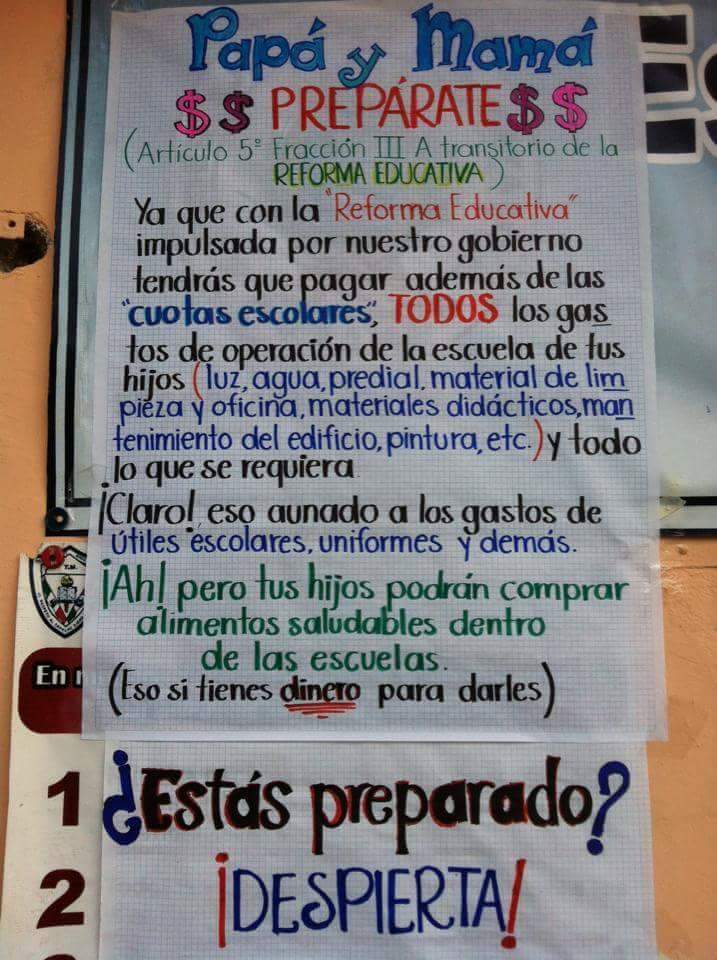 Papá y Mamá
$ $ PREPÁRATE $ $
(Artículo 5º Fracción III A transitorio de la
REFORMA EDUCATIVA)
Ya que con la "Reforma Educativa"
impulsada por nuestro gobierno
tendrás que pagar además de las
"cuotas escolares", TODOS los gas
tos de operación de la escuela de tus
hijos (luz, agua, predial, material de lim
pieza y oficina, materiales didácticos, man
tenimiento del edificio, pintura, etc.) y todo
lo que se requiera.
¡Claro!, eso aunado a los gastos de
útiles escolares, uniformes y demás.
¡Ah! pero tus hijos podrán comprar
alimentos saludables dentro
de las escuelas.
(Eso si tienes dinero para darles)
T.M.
En
1
¿Estás preparado?
2
¡DESPIERTA!